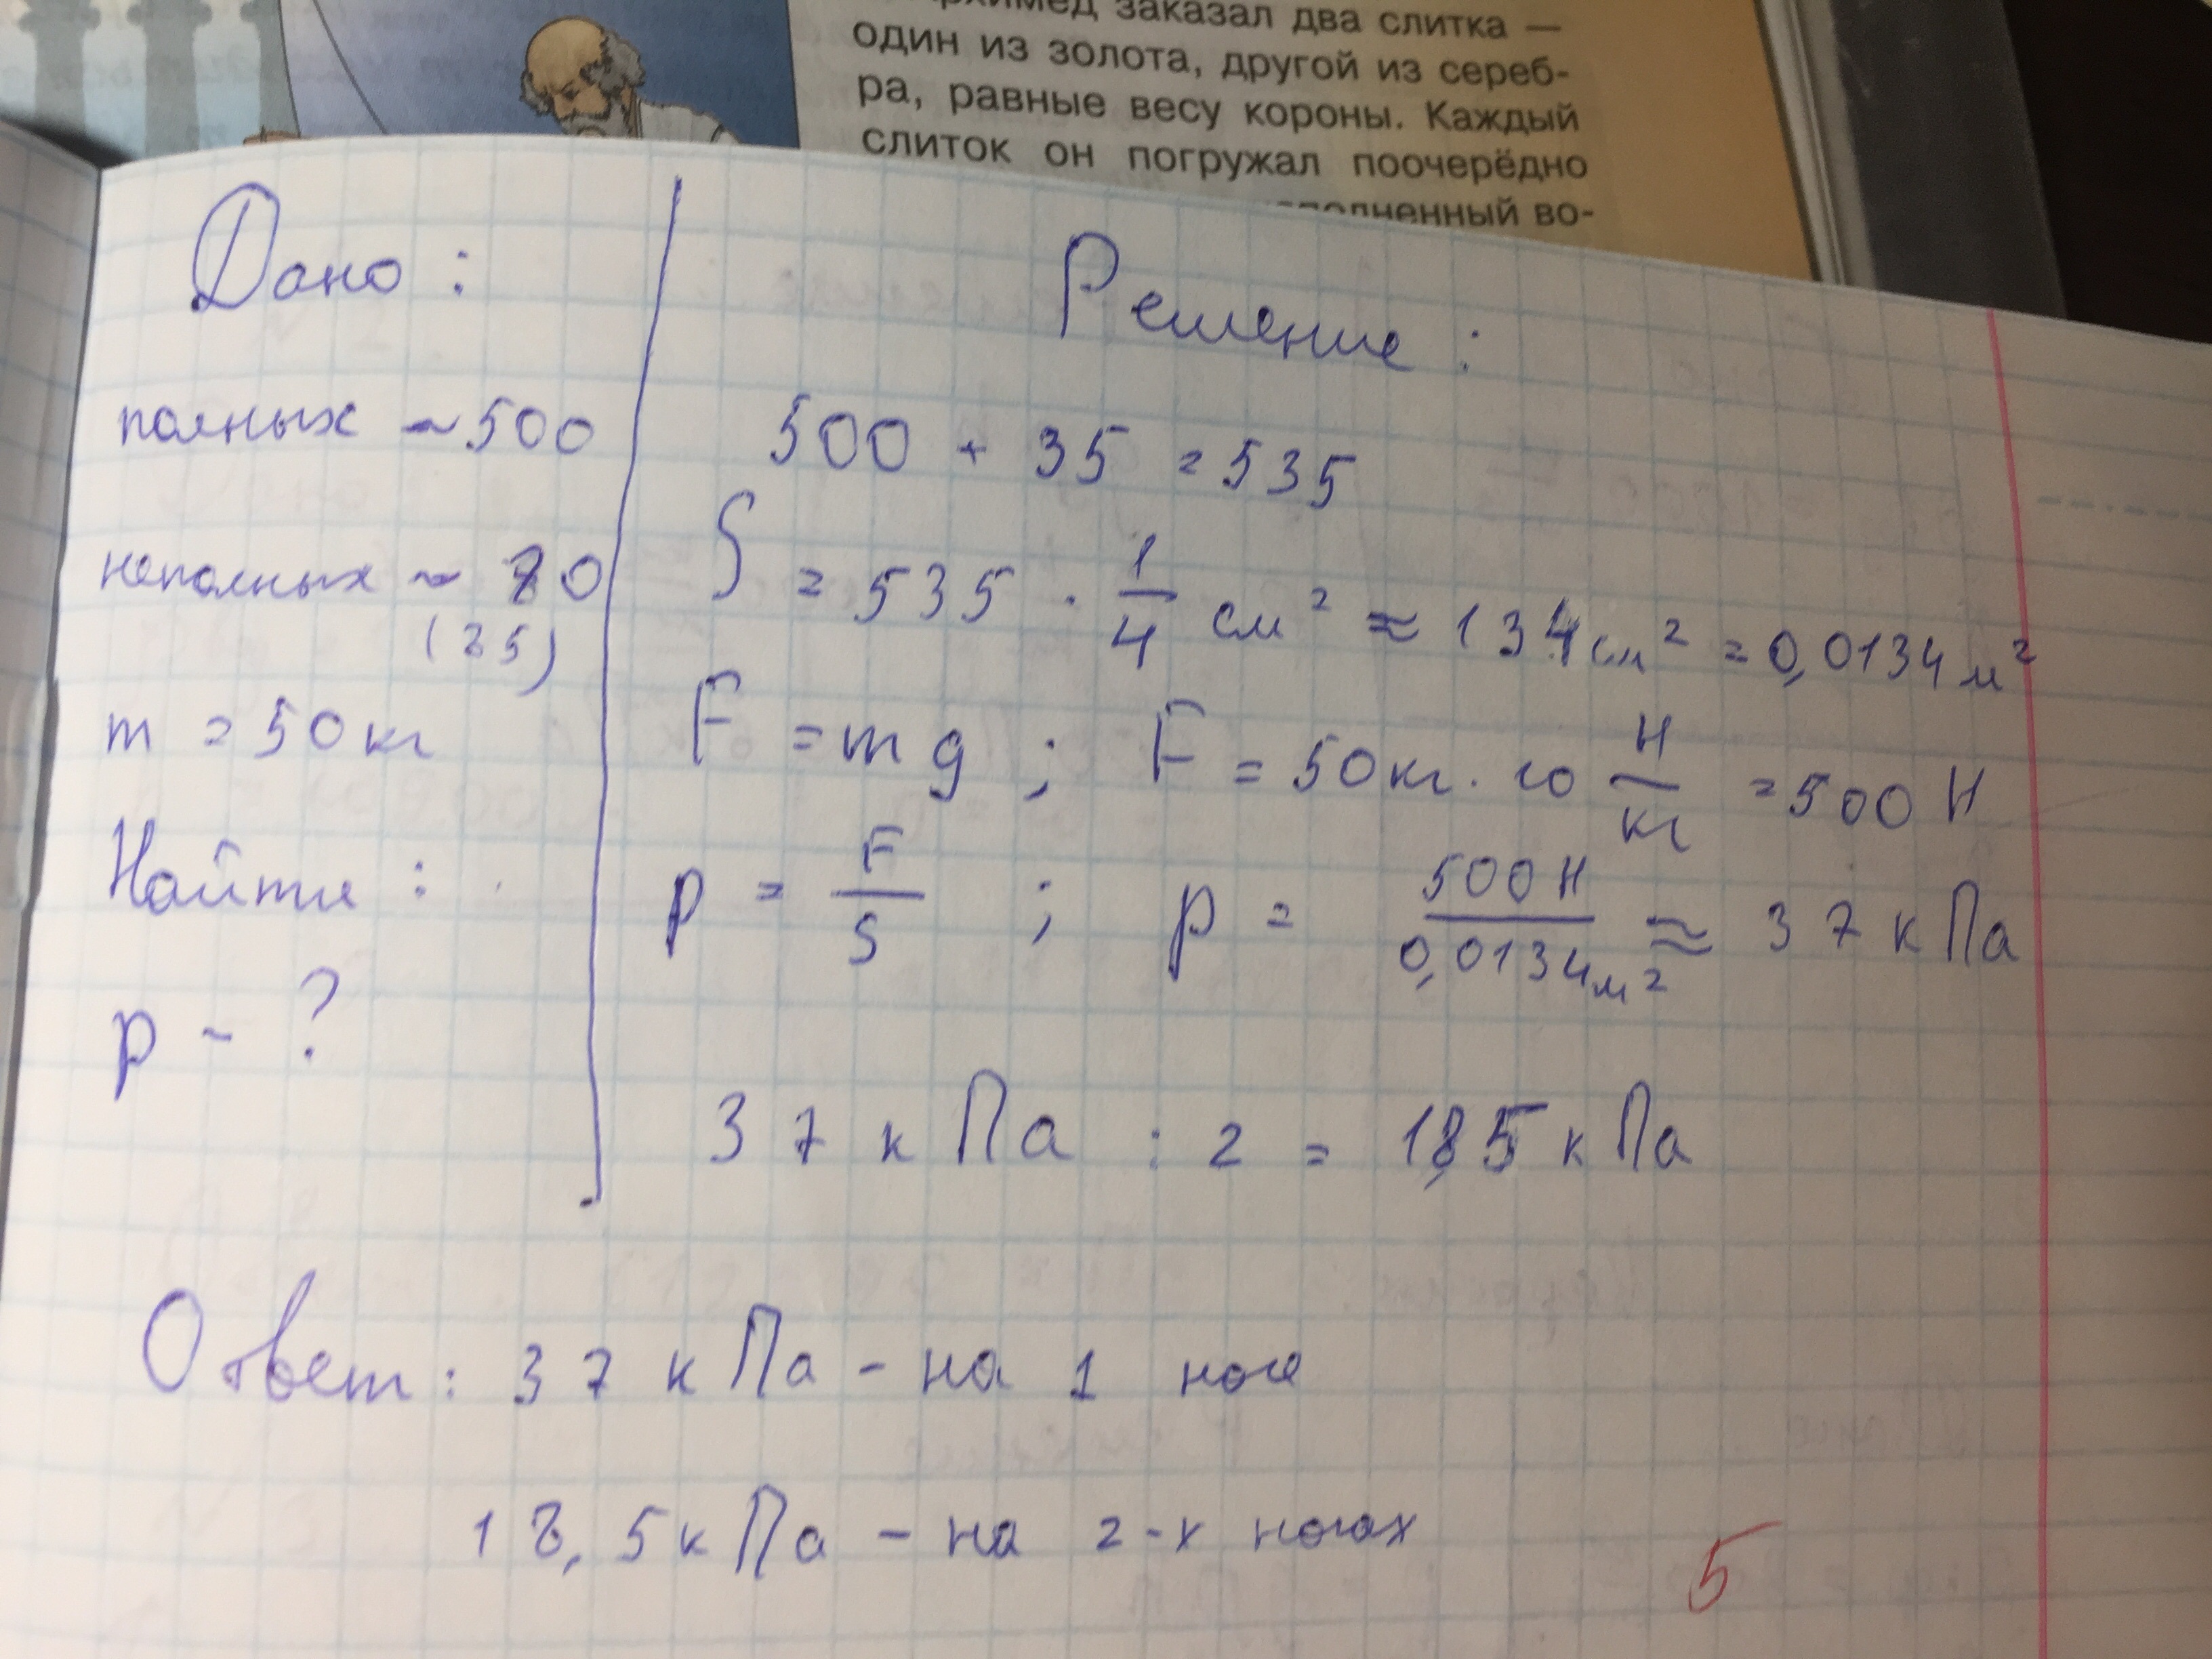 Архимед заказал два слитка —
один из золота, другой из сереб-
ра, равные весу короны. Каждый
слиток он погружал поочерёдно
во-
Дано :
полных ~ 500
неполных ~ 70
(35)
m = 50 кг
Найти :
p - ?
Решение :
500 + 35 = 535
S = 535 · 1/4 см² ≈ 134 см² = 0,0134 м²
F = mg ; F = 50 кг · 10 Н/кг = 500 Н
p = F/S ; p = 500 Н/0,0134 м² ≈ 37 кПа
37 кПа : 2 = 18,5 кПа
Ответ : 37 кПа - на 1 ноге
18,5 кПа - на 2-х ногах
5